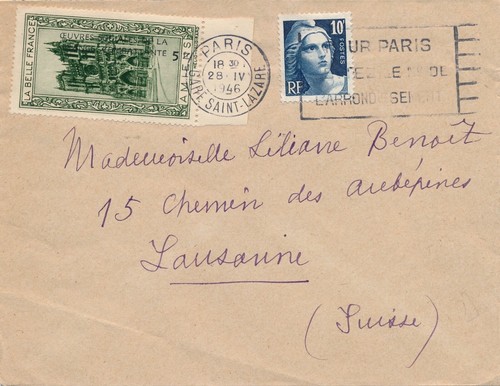 LA BELLE FRANCE
ŒUVRES
DE LA
5
AMIENS
PARIS
18 30
28 · IV
1946
GARE SAINT-LAZARE
10F
POSTES
RF
UR PARIS
LE Nº DE
L'ARRONDISSEMENT
Mademoiselle Liliane Benoît
15 Chemin des aubépines
Lausanne
(Suisse)